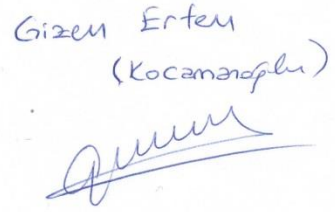 Gizem Erten
(Kocamanoğlu)